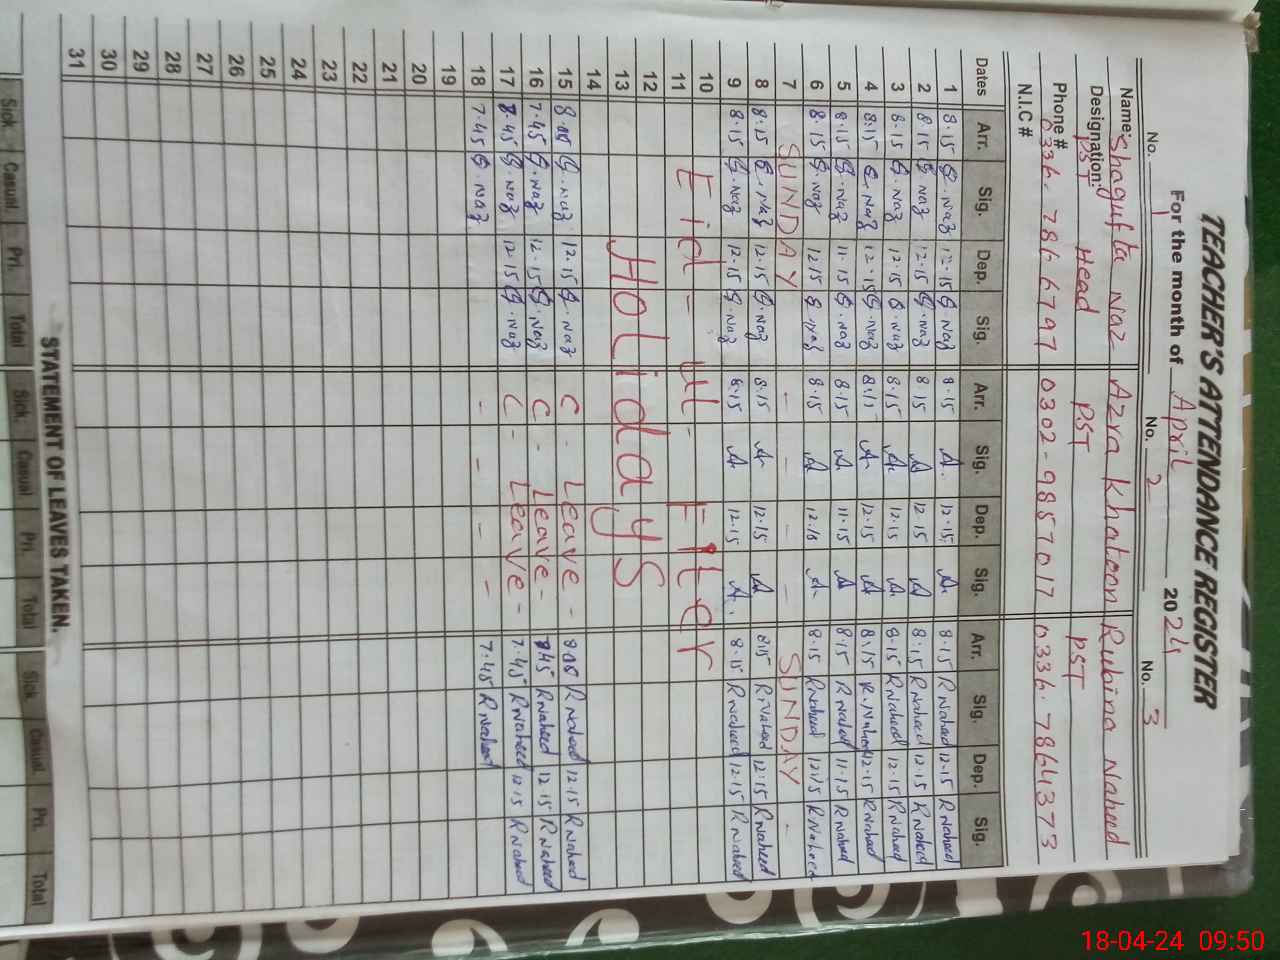 TEACHER'S ATTENDANCE REGISTER
For the month of April 2024
No. 1 No. 2 No. 3
Name: Shagufta Naz Azra Khatoon Rubina Naheed
Designation: PST Head PST PST
Phone # 0336-7866797 0302-9857017 0336-7864373
N.I.C #
Dates Arr. Sig. Dep. Sig. Arr. Sig. Dep. Sig. Arr. Sig. Dep. Sig.
1 8.15 S.Naz 12.15 S.Naz 8.15 A. 12.15 A. 8.15 RNaheed 12.15 RNaheed
2 8.15 S.Naz 12.15 S.Naz 8.15 A 12.15 A 8.15 RNaheed 12.15 RNaheed
3 8.15 S.Naz 12.15 S.Naz 8.15 A 12.15 A 8.15 RNaheed 12.15 RNaheed
4 8.15 S.Naz 12.15 S.Naz 8.15 A 12.15 A 8.15 R.Naheed 12.15 RNaheed
5 8.15 S.Naz 11.15 S.Naz 8.15 A 11.15 A 8.15 RNaheed 11.15 RNaheed
6 8.15 S.Naz 12.15 S.Naz 8.15 A 12.15 A 8.15 RNaheed 12.15 RNaheed
7 SUNDAY - - - - SUNDAY -
8 8.15 S.Naz 12.15 S.Naz 8.15 A 12.15 A 8.15 RNaheed 12.15 RNaheed
9 8.15 S.Naz 12.15 S.Naz 8.15 A 12.15 A. 8.15 RNaheed 12.15 RNaheed
10
11 Eid - ul - Fiter
12
13 Holidays
14
15 8.00 S.Naz 12.15 S.Naz C - Leave - 8.00 RNaheed 12.15 RNaheed
16 7.45 S.Naz 12.15 S.Naz C - Leave - 7.45 RNaheed 12.15 RNaheed
17 7.45 S.Naz 12.15 S.Naz C - Leave - 7.45 RNaheed 12.15 RNaheed
18 7.45 S.Naz - - - - 7.45 RNaheed
19
20
21
22
23
24
25
26
27
28
29
30
31
STATEMENT OF LEAVES TAKEN.
Sick Casual Pri. Total Sick. Casual Pri. Total Sick Casual. Pri. Total
18-04-24 09:50